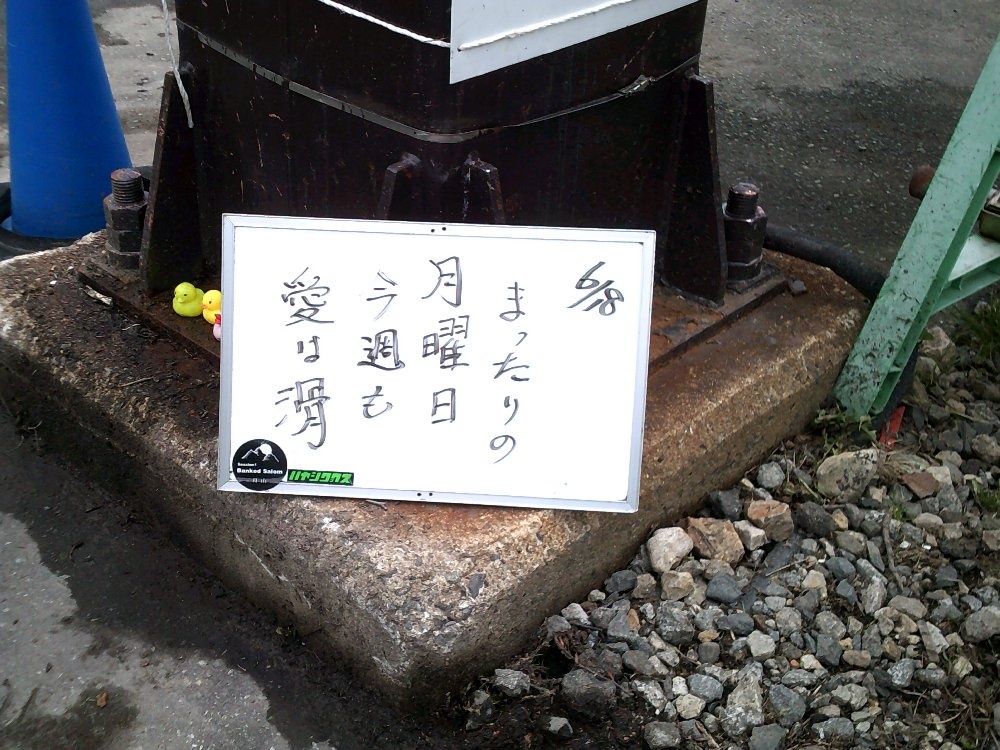 6/18
まったりの
月曜日
今週も
愛は滑
Banked Salom
月山
ハヤシワカス